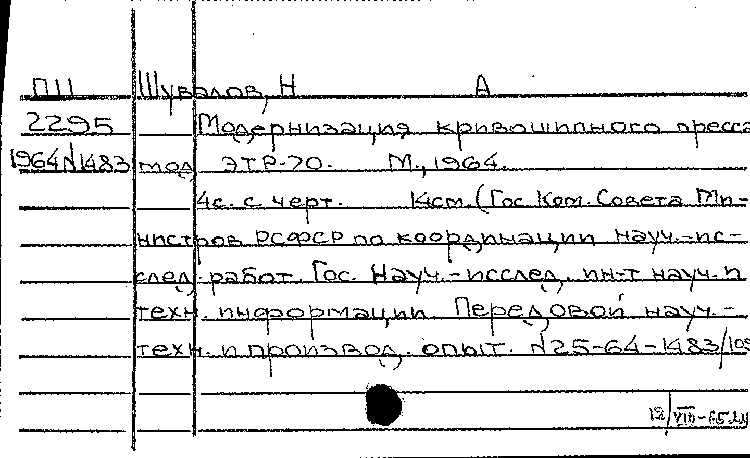 ПШ Шувалов, Н А
2295 Модернизация кривошипного пресса
1964 N1483 мод ЭТР-70. М., 1964.
4с. с черт. (Гос Ком. Совета Ми-
нистров РСФСР по координации науч.-ис-
след. работ. Гос. науч.-исслед. ин-т науч. и
техн. информации. Передовой науч.-
техн. и производ. опыт. N25-64-1483/